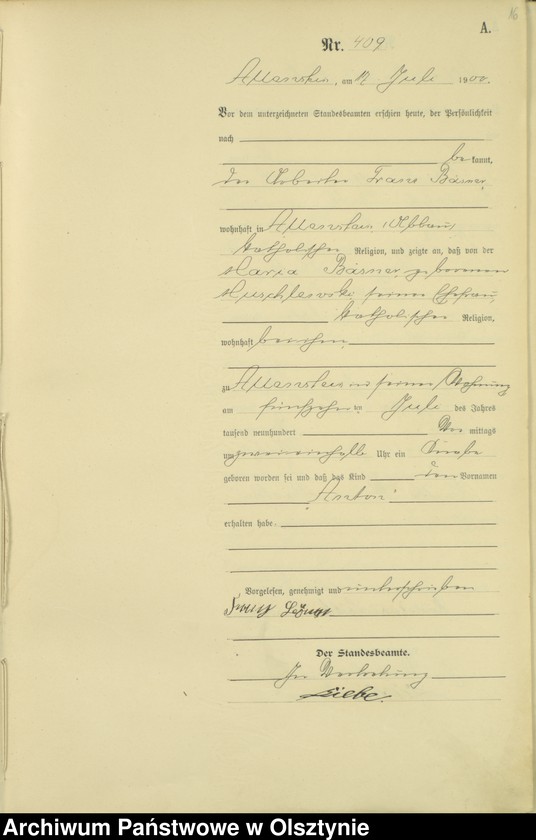 16
A.
Nr. 409
am Juli 1900.
Vor dem unterzeichneten Standesbeamten erschien heute, der Persönlichkeit
nach
be kannt,
der Arbeiter Franz
wohnhaft in
katholischer Religion, und zeigte an, daß von der
Maria geborenen
seiner Ehefrau,
katholischer Religion,
wohnhaft bei ihm
zu in seiner Wohnung
am Juli des Jahres
tausend neunhundert Vor mittags
um Uhr ein Knabe
geboren worden sei und daß das Kind den Vornamen
Anton
erhalten habe.
Vorgelesen, genehmigt und unterschrieben
Franz
Der Standesbeamte.
In Vertretung
Liebe.
Archiwum Państwowe w Olsztynie